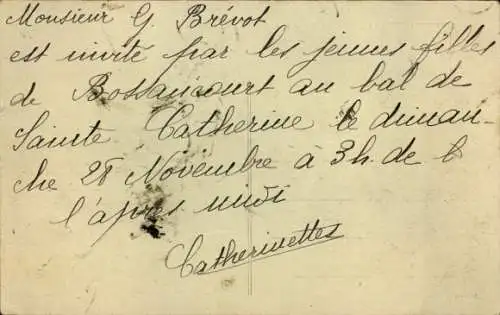 Monsieur G. Brévot
est invité par les jeunes filles
de Bossancourt au bal de
Sainte Catherine le diman-
che 28 Novembre à 3h. de
l'après midi
Catherinettes